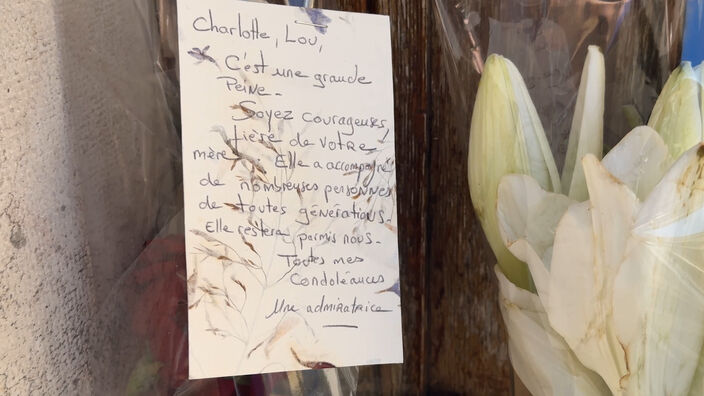 Charlotte, Lou,
C'est une grande
Peine -
Soyez courageuses,
fière de votre
mère. Elle a accompagné
de nombreuses personnes
de toutes générations -
Elle restera parmis nous -
Toutes mes
Condoléances
Une admiratrice